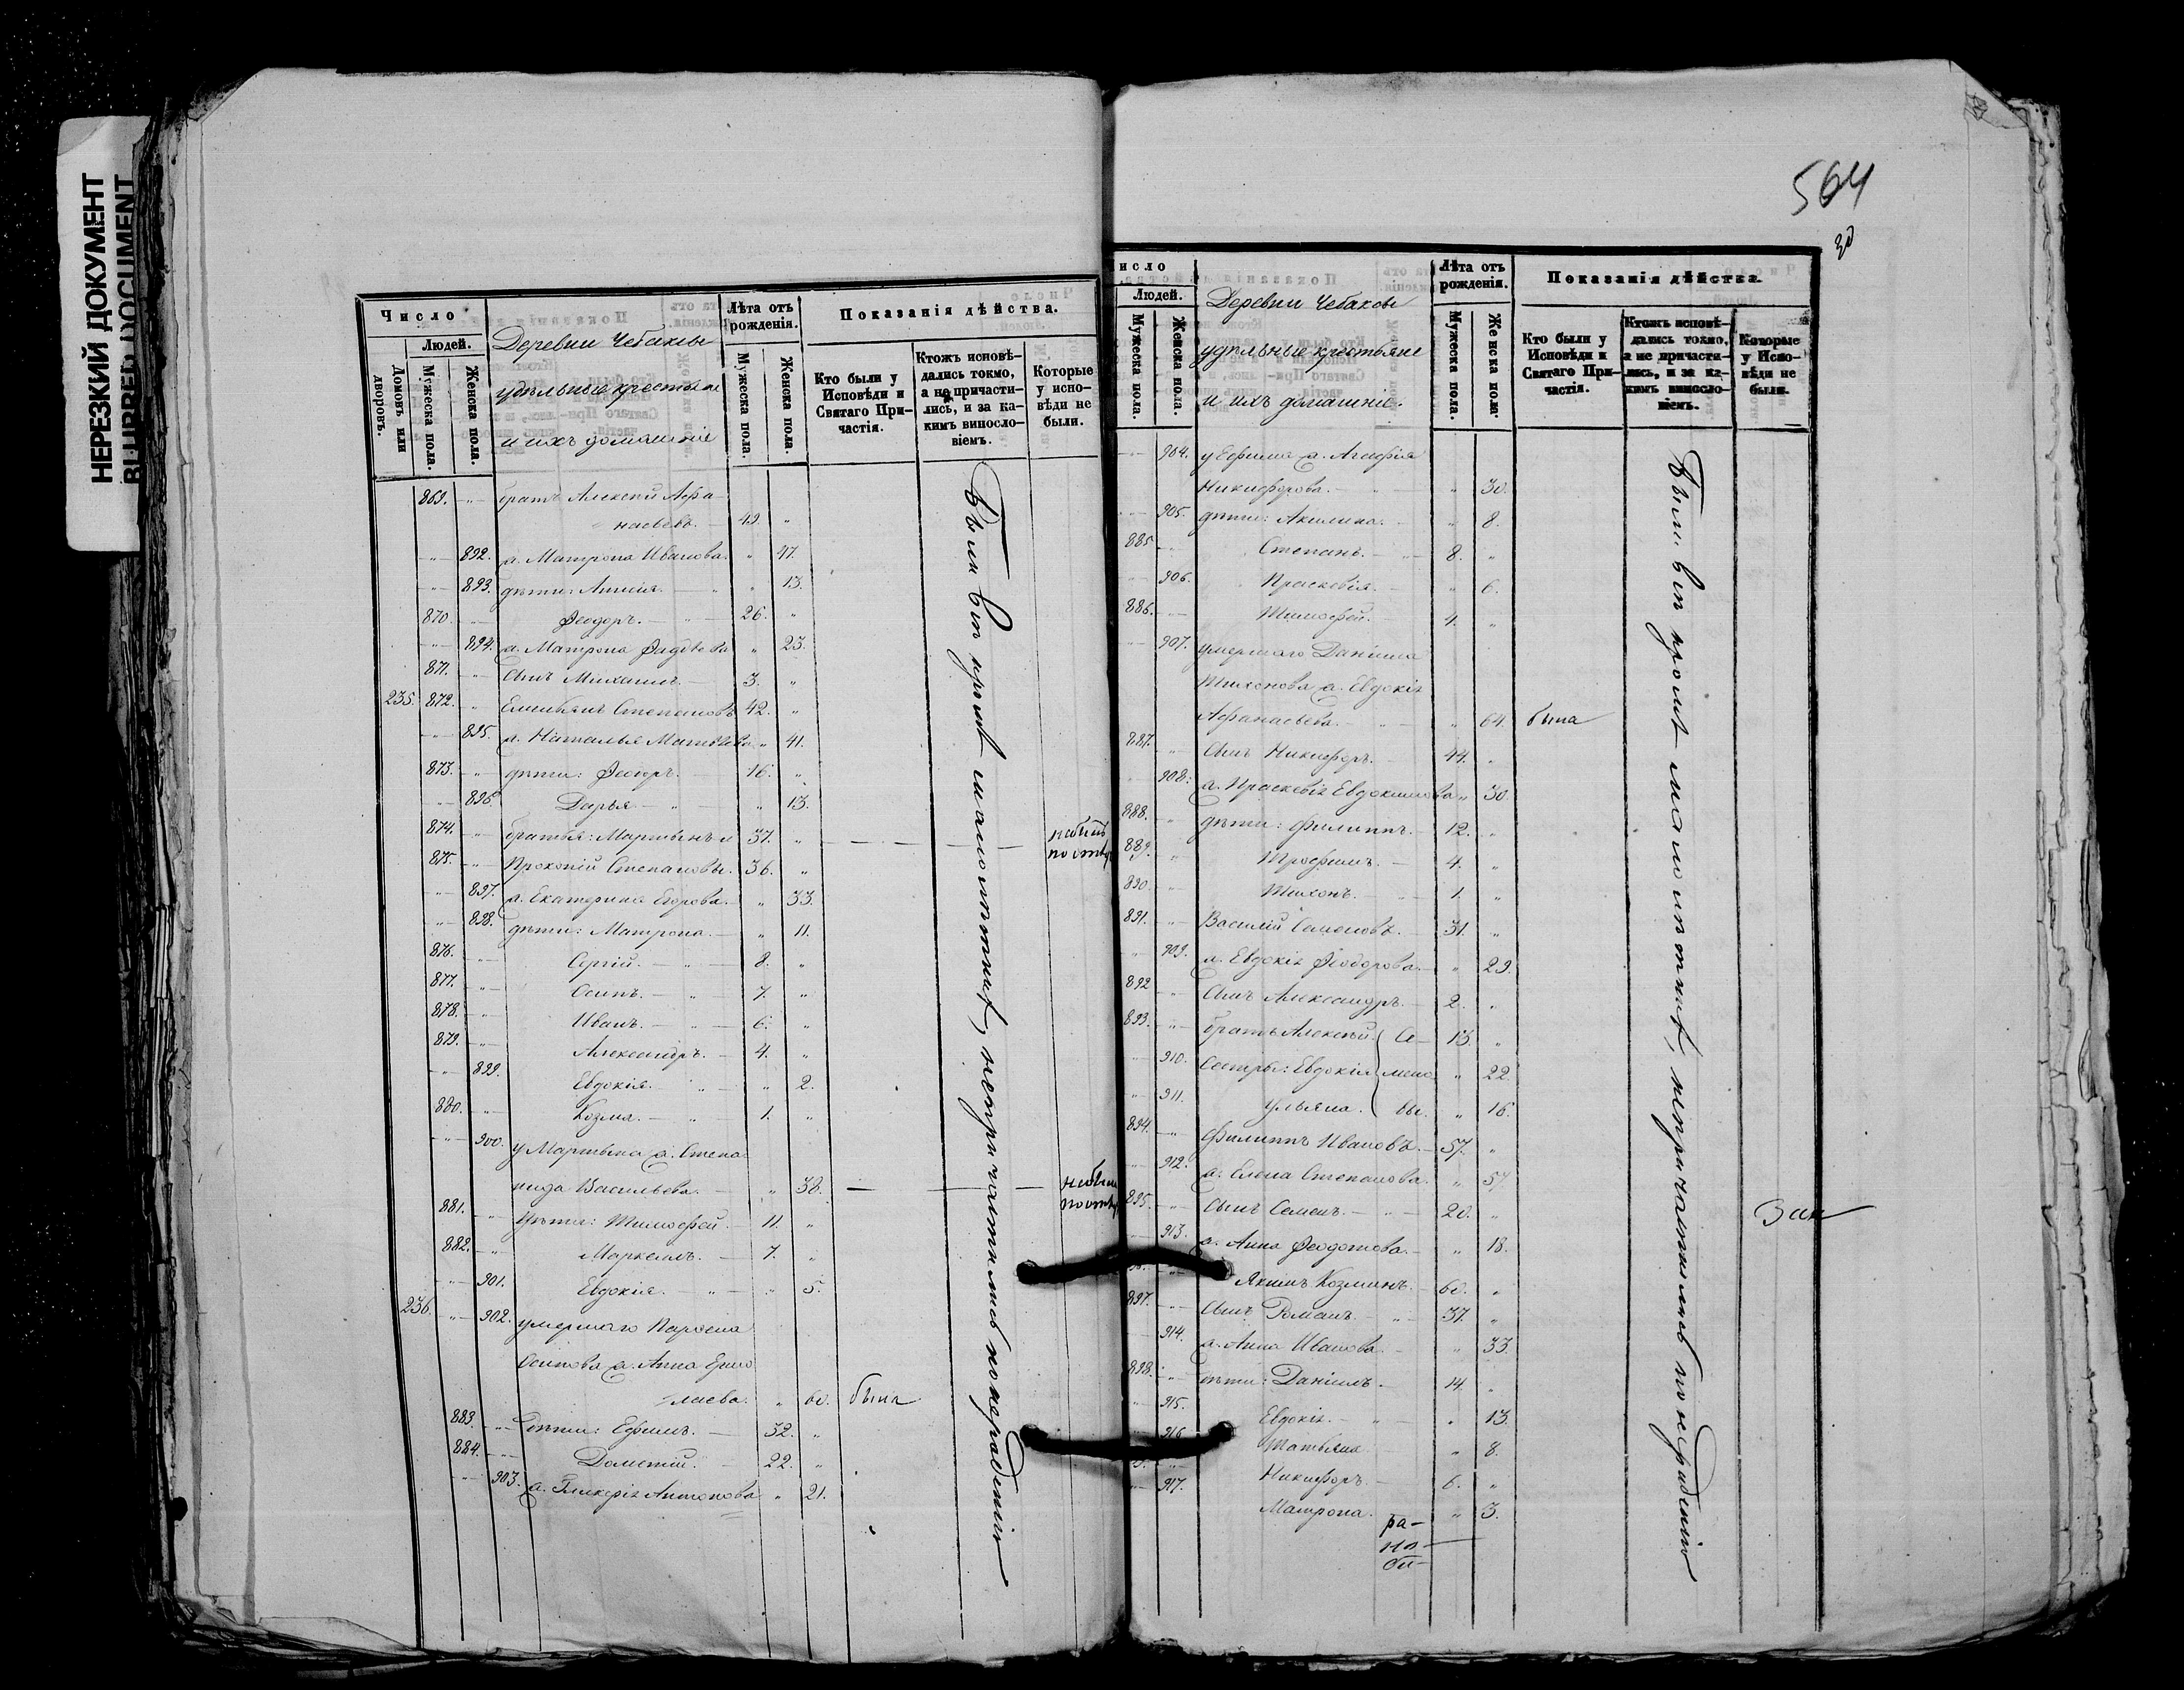 НЕРЕЗКИЙ ДОКУМЕНТ
BLURRED DOCUMENT
Число
Людей.
Домовъ или дворовъ.
Мужеска пола.
Женска пола.
Деревни Чебаксы
удѣльные крестьяне
и ихъ домашніе
Лѣта отъ рожденія.
Мужеска пола.
Женска пола.
Показанія дѣйства.
Кто были у Исповѣди и Святаго Причастія.
Ктожъ исповѣдались токмо, а не причастились, и за какимъ винословіемъ.
Которые у исповѣди не были.
869. -"- братъ Алексѣй Афа-
насьевъ. 49. "
-"- 892. ж. Матрона Иванова. " 47.
-"- 893. дѣти: Анисія. " 13.
870. -"- Ѳеодоръ. 26. "
-"- 894. ж. Матрона Фадѣева " 23.
871. -"- сынъ Михаилъ. 3. "
235. 872. " Емельянъ Степановъ 42. "
-"- 895. ж. Наталья Матвѣева " 41.
873. -"- дѣти: Ѳеодоръ. 16. "
-"- 896 Дарья " 13.
874. -"- братья: Мартынъ и 37. "
875. -"- Прокопій Степановы. 36. "
-"- 897. ж. Екатерина Егорова. " 33.
-"- 898. дѣти: Матрона. " 11.
876. -"- Сергій. 8. "
877. -"- Осипъ. 7. "
878. -"- Иванъ. 6. "
879. -"- Александръ. 4. "
-"- 899. Евдокія. " 2.
880. -"- Козма. 1. "
-"- 900. у Мартына ж. Степа-
нида Васильева. " 38.
881. -"- дѣти: Тимофей. 11. "
882. -"- Маркелъ. 7. "
-"- 901. Евдокія. " 5.
236. -"- 902. умершаго Парѳена
Осипова ж. Анна Ермо
лаева. " 60. была
883. -"- дѣти: Ефимъ. 32. "
884. -"- Дометій. 22. "
-"- 903. ж. Гликерія Антонова " 21.
Были вси кромѣ малолѣтнихъ, непричастились по нерадѣнію
564
Число
Людей.
Мужеска пола.
Женска пола.
Деревни Чебаксы
удѣльные крестьяне
и ихъ домашніе.
Лѣта отъ рожденія.
Мужеска пола.
Женска пола.
Показанія дѣйства.
Кто были у Исповѣди и Святаго Причастія.
Ктожъ исповѣдались токмо, а не причастились, и за какимъ винословіемъ.
Которые у Исповѣди не были.
-"- 904. у Ефима ж. Агафія
Никифорова. " 30.
-"- 905. дѣти: Акилина. " 8.
885 -"- Степанъ. 8. "
-"- 906. Прасковія. " 6.
886. -"- Тимофей. 4. "
-"- 907. умершаго Даніила
Тихонова ж. Евдокія
Афанасьева. " 64. была
887. " сынъ Никифоръ. 44. "
-"- 908. ж. Прасковія Евдокимова " 30.
888. " дѣти: Филиппъ. 12. "
889. " Трофимъ. 4. "
890. " Тихонъ. 1. "
891. " Василій Семеновъ. 31. "
" 909. ж. Евдокія Ѳеодорова. " 29.
892 " сынъ Александръ. 2. "
893. -"- братъ Алексѣй. Се- 13. "
-"- 910. сестры: Евдокія мено " 22.
" 911. Ульяна. вы. " 16.
894. -"- Филиппъ Ивановъ. 57. "
-"- 912. ж. Елена Степанова. " 57
895. -"- сынъ Семенъ. 20. "
913. ж. Анна Ѳеодотова. " 18.
Якимъ Козминъ. 60. "
897. -"- сынъ Романъ. 37. "
914. ж. Анна Иванова. " 33.
898. -"- дѣти: Даніилъ. 14. "
" 915. Евдокія. " 13.
916 Татьяна. " 8.
Никифоръ. 6. "
-"- 917. Матрона. " 3.
Были вси кромѣ малолѣтнихъ, непричастились по нерадѣнію